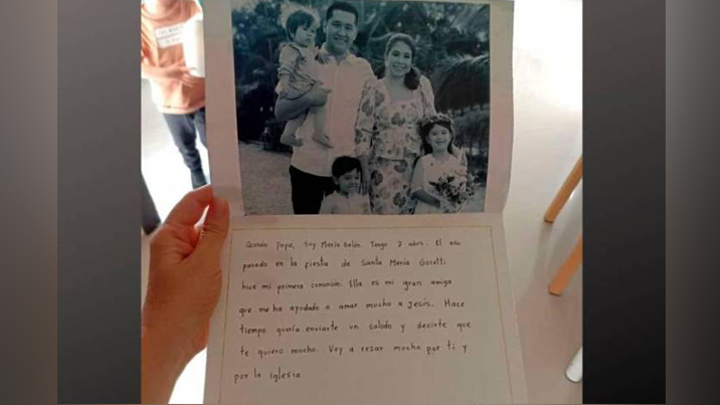 Querido Papa, Soy María Belén. Tengo 7 años. El año
pasado en la fiesta de Santa María Goretti
hice mi primera comunión. Ella es mi gran amiga
que me ha ayudado a amar mucho a Jesús. Hace
tiempo quería enviarte un saludo y decirte que
te quiero mucho. Voy a rezar mucho por ti y
por la iglesia